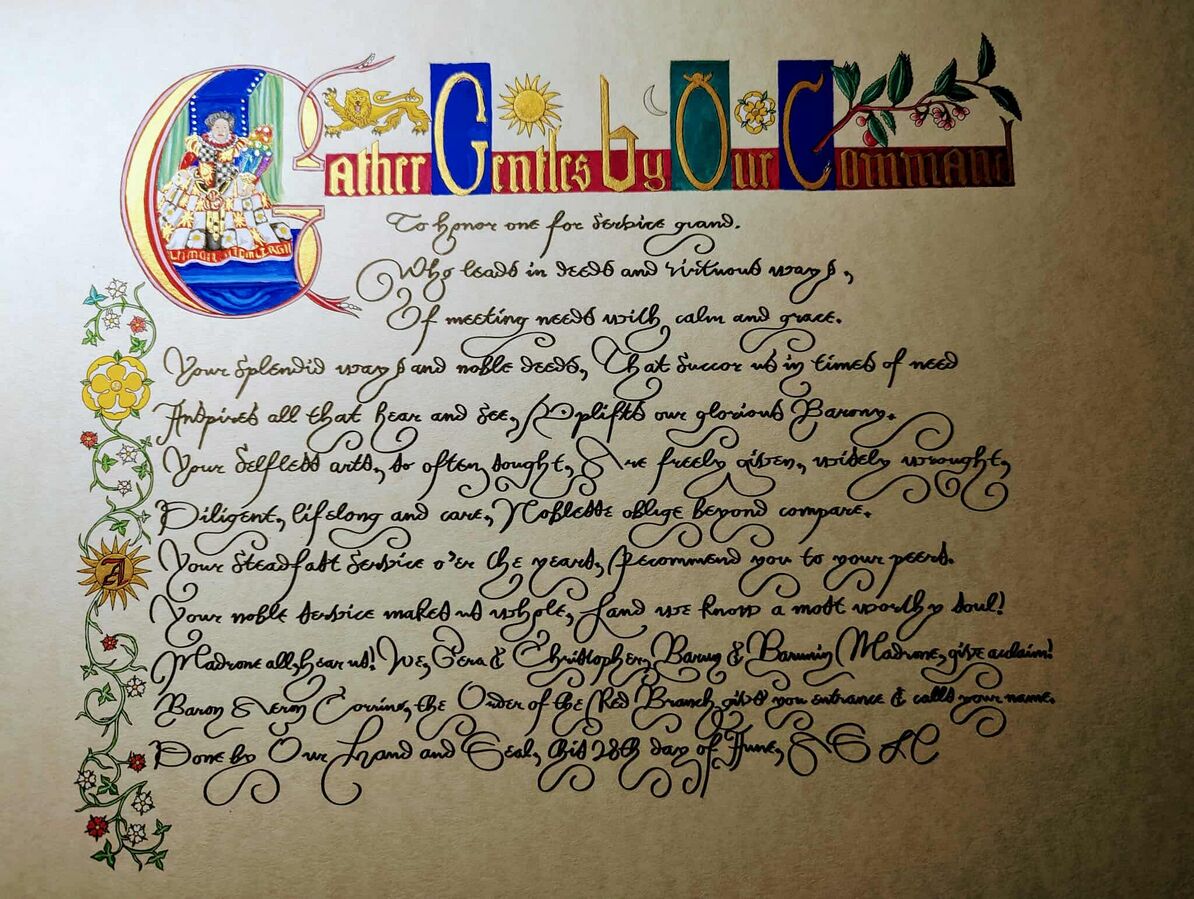 Gather Gentles by Our Command
To honor one for service grand.
Who leads in deeds and virtuous ways,
Of meeting needs with calm and grace.
Your splendid ways and noble deeds, That succor us in times of need
Inspires all that hear and see, Uplifts our glorious Barony.
Your selfless arts, so often sought, Are freely given, widely wrought,
Diligent, lifelong and care, Noblesse oblige beyond compare.
A
Your steadfast service o'er the years, Recommend you to your peers.
Your noble service makes us whole, And we know a most worthy soul!
Madrone all, hear us! We, & Christopher, Baron & Madrone, give acclaim!
Baron the Order of the Red Branch give you entrance & calls your name.
Done by Our Hand and Seal, this 28th day of June, AS LC